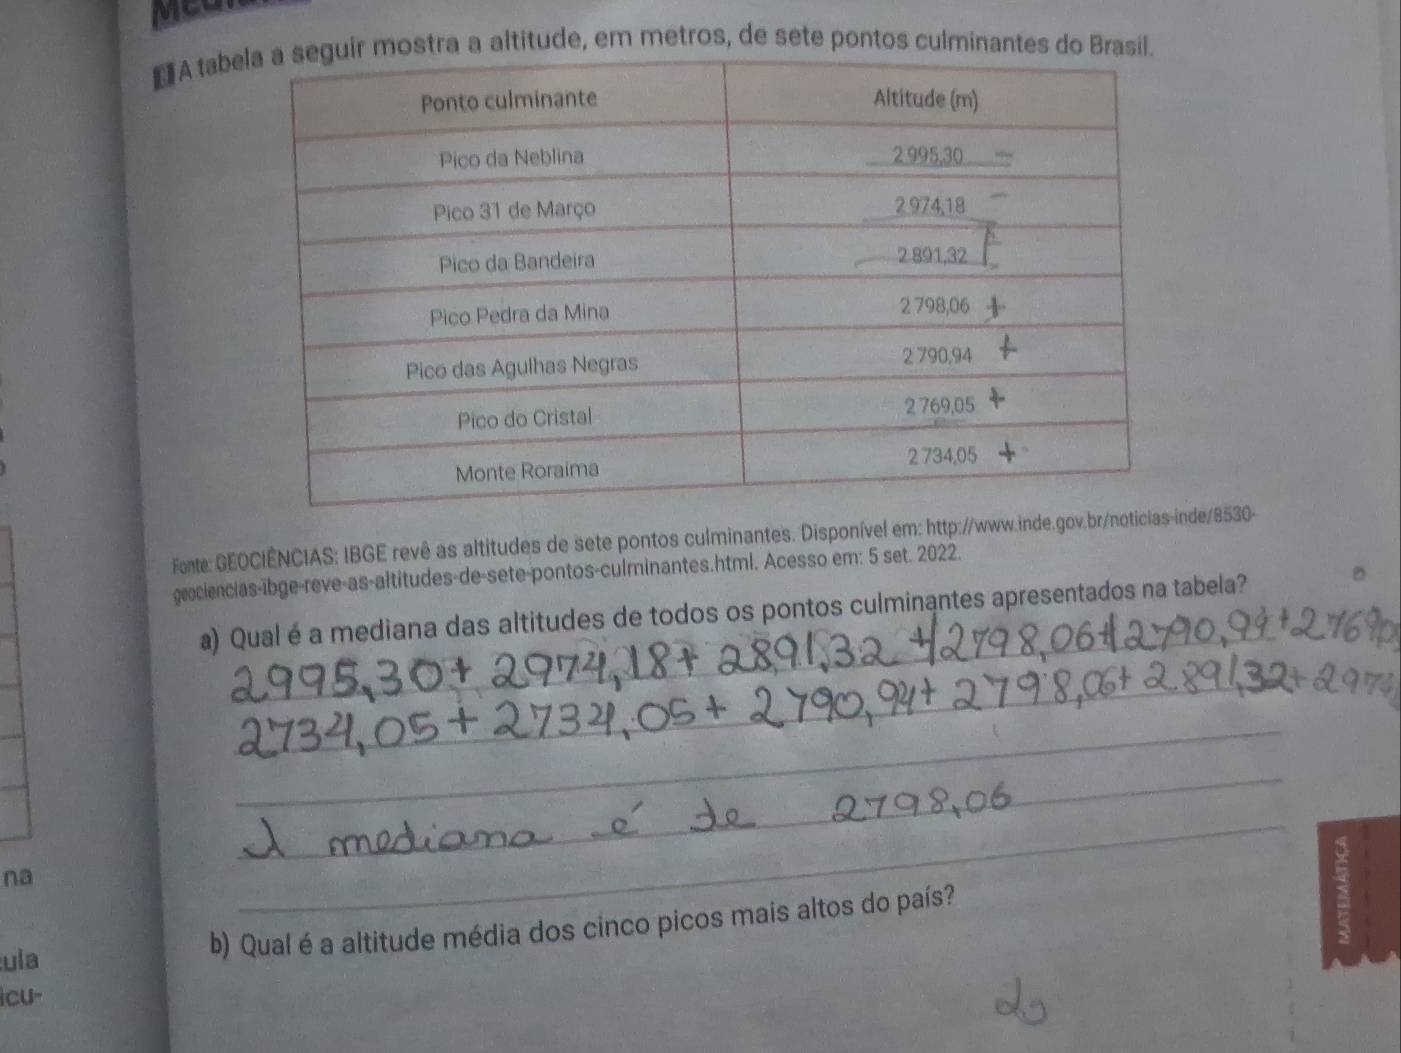 A tabela a seguir mostra a altitude, em metros, de sete pontos culminantes do Brasil.
Ponto culminante Altitude (m)
Pico da Neblina 2 995,30 -
Pico 31 de Março 2 974,18 -
Pico da Bandeira 2 891,32
Pico Pedra da Mina 2 798,06 +
Pico das Agulhas Negras 2 790,94 +
Pico do Cristal 2 769,05 +
Monte Roraima 2 734,05 +
Fonte: GEOCIÊNCIAS: IBGE revê as altitudes de sete pontos culminantes. Disponível em: http://www.inde.gov.br/noticias-inde/8530-
geociencias-ibge-reve-as-altitudes-de-sete-pontos-culminantes.html. Acesso em: 5 set. 2022.
a) Qual é a mediana das altitudes de todos os pontos culminantes apresentados na tabela?
2995,30 + 2974,18 + 2891,32 + 2798,06 + 2790,94 +
2734,05 + 2734,05 + 2790,94 + 2798,06 + 2891,32 + 297
A mediana é de 2798,06
b) Qual é a altitude média dos cinco picos mais altos do país?
MATEMÁTICA
na
cula
icu-